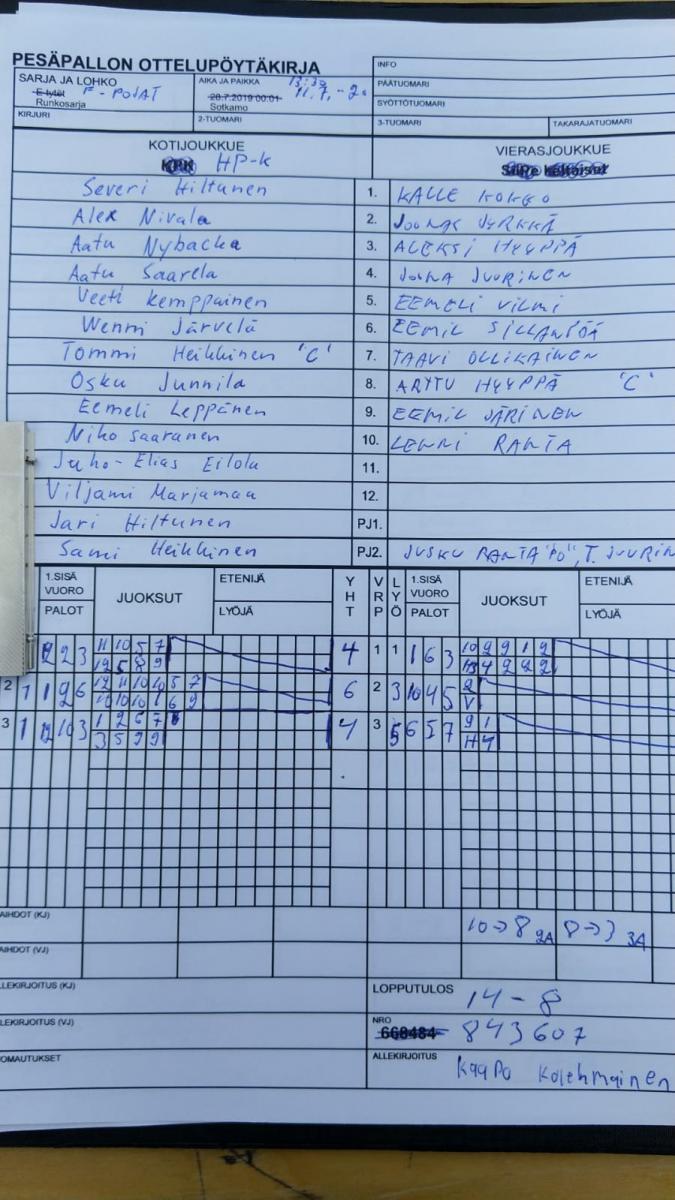 PESÄPALLON OTTELUPÖYTÄKIRJA
INFO
SARJA JA LOHKO
F - POJAT
E-tytöt
Runkosarja
AIKA JA PAIKKA
28.7.2019 00:01
Sotkamo
PÄÄTUOMARI
SYÖTTÖTUOMARI
KIRJURI
2-TUOMARI
3-TUOMARI
TAKARAJATUOMARI
KOTIJOUKKUE
HP-K
VIERASJOUKKUE
Severi Hiltunen 1. KALLE KOKKO
Alex Nivala 2. JOONAS JYRKKÄ
Aatu Nybacka 3. ALEKSI HYYPPÄ
Aatu Saarela 4. JOONA JUURINEN
Veeti Kemppainen 5. EEMELI VILMI
Wenni Järvelä 6. EEMIL SILLANPÄÄ
Tommi Heikkinen 'C' 7. TAAVI OLLIKAINEN
Osku Junnila 8. ARTTU HYYPPÄ 'C'
Eemeli Leppänen 9. EEMIL JÄRINEN
Niko Saaranen 10. LENNI RANTA
Juho-Elias Eilola 11.
Viljami Marjamaa 12.
Jari Hiltunen PJ1.
Sami Heikkinen PJ2. JUSKU RANTA "PO", T. JUURIN
1.SISÄ VUORO
PALOT
JUOKSUT
ETENIJÄ
LYÖJÄ
YHT
VRP
LYÖ
1.SISÄ VUORO
PALOT
JUOKSUT
ETENIJÄ
LYÖJÄ
2 2 3 11 10 5 7 4 1 1 1 6 3
12 5 8 9
2 1 1 9 6 6 2 3 10 4 5 2
V
3 1 12 10 3 1 2 6 7 4 3 5 6 5 7 9 1
3 5 9 9 H 4
AIHDOT (KJ) 10→8 2A 8→3 3A
AIHDOT (VJ)
LLEKIRJOITUS (KJ)
LOPPUTULOS 14-8
LLEKIRJOITUS (VJ)
NRO
668484 843607
OMAUTUKSET
ALLEKIRJOITUS
Kaapo Kolehmainen